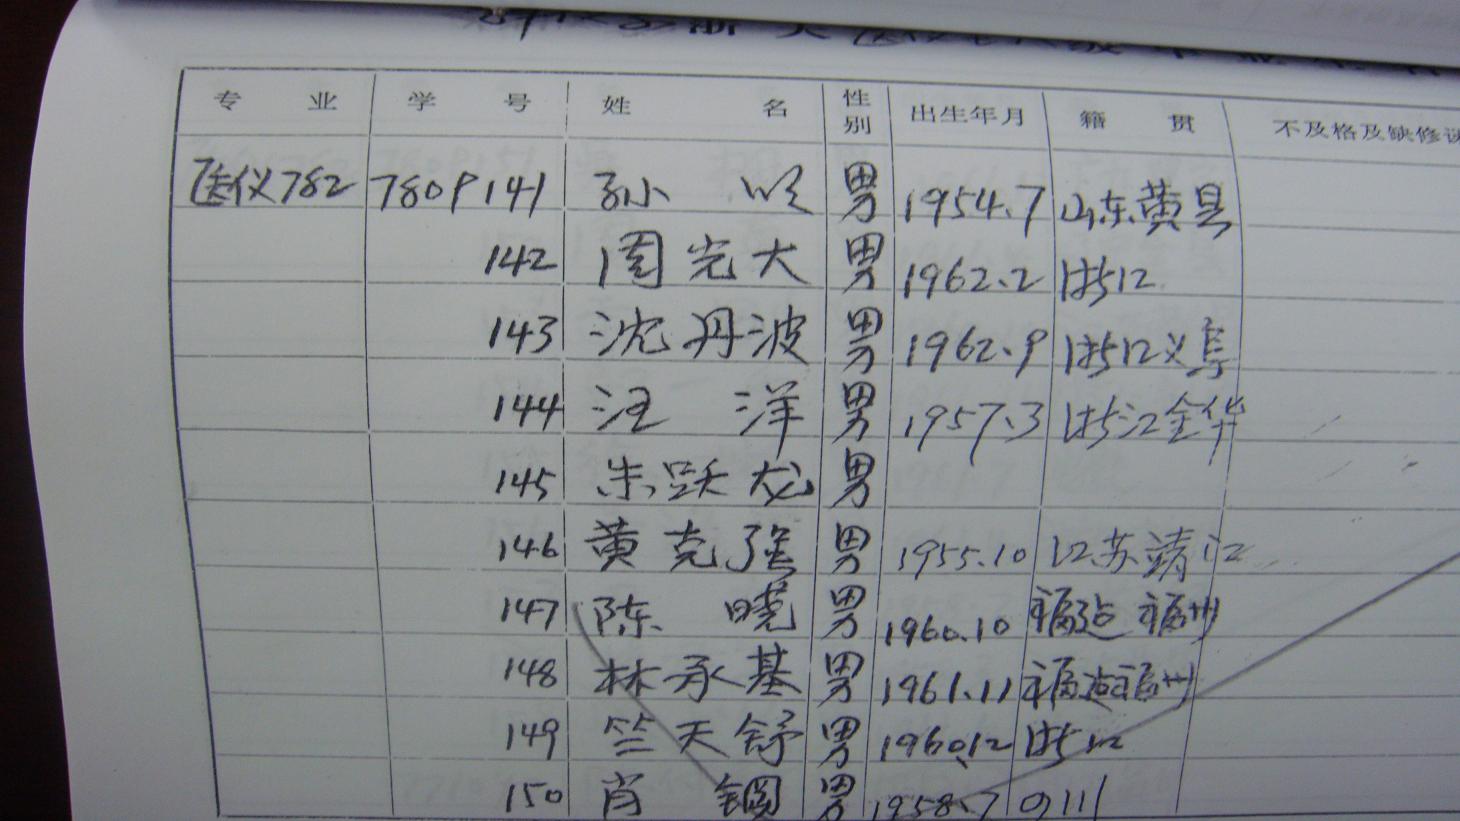 专 业 学 号 姓 名 性别 出生年月 籍 贯 不及格及缺修
医仪782 7809141 孙 男 1954.7 山东黄县
142 周光大 男 1962.2 浙江
143 沈丹波 男 1962.9 浙江义乌
144 汪 洋 男 1957.3 浙江金华
145 朱跃龙 男
146 黄克强 男 1955.10 江苏靖江
147 陈 晓 男 1960.10 福建 福州
148 林承基 男 1961.11 福建福州
149 竺天舒 男 1960.12 浙江
150 肖 钢 男 1958.7 四川